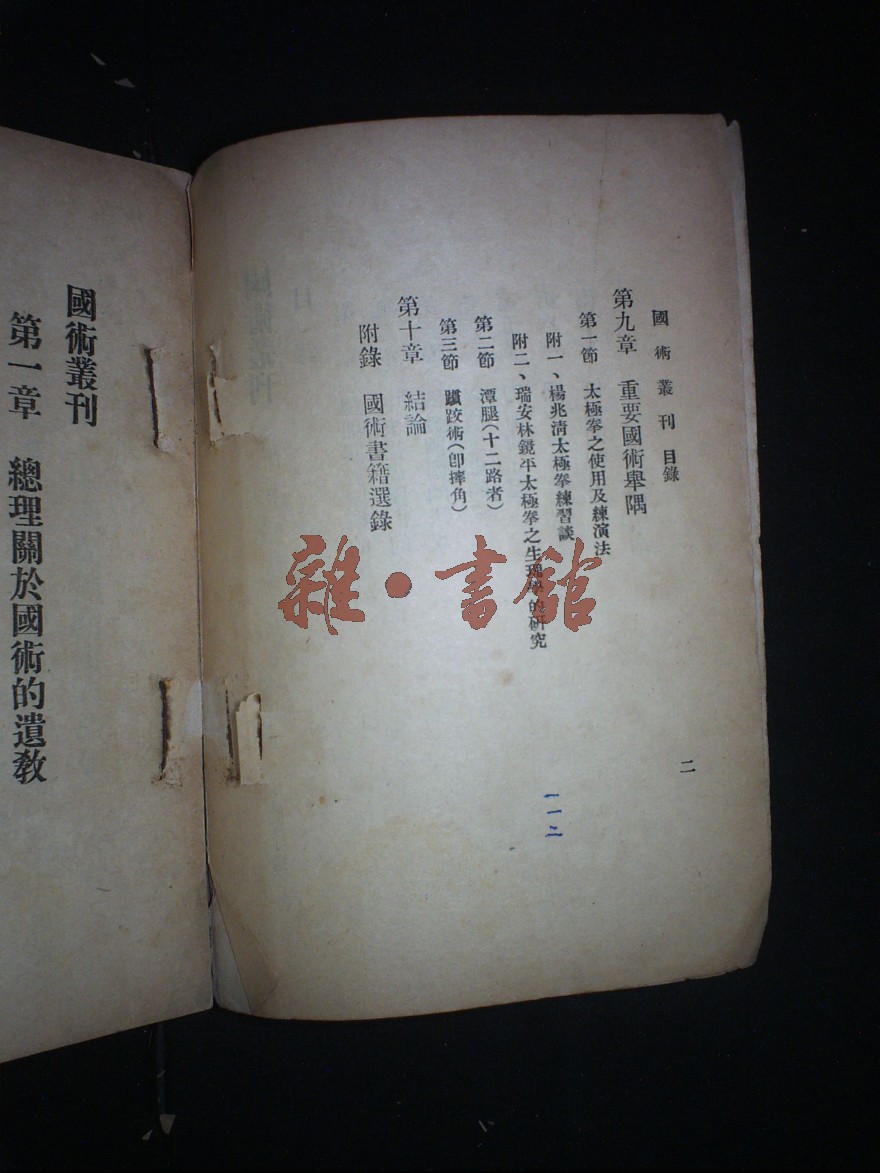 國術叢刊 目錄
二
第九章 重要國術舉隅
第一節 太極拳之使用及練演法
附一、楊兆清太極拳練習談
附二、瑞安林鏡平太極拳之生理學的研究
一一二
第二節 潭腿(十二路者)
第三節 摜跤術(卽摔角)
第十章 結論
附錄 國術書籍選錄
國術叢刊
第一章 總理關於國術的遺敎
雜·書館